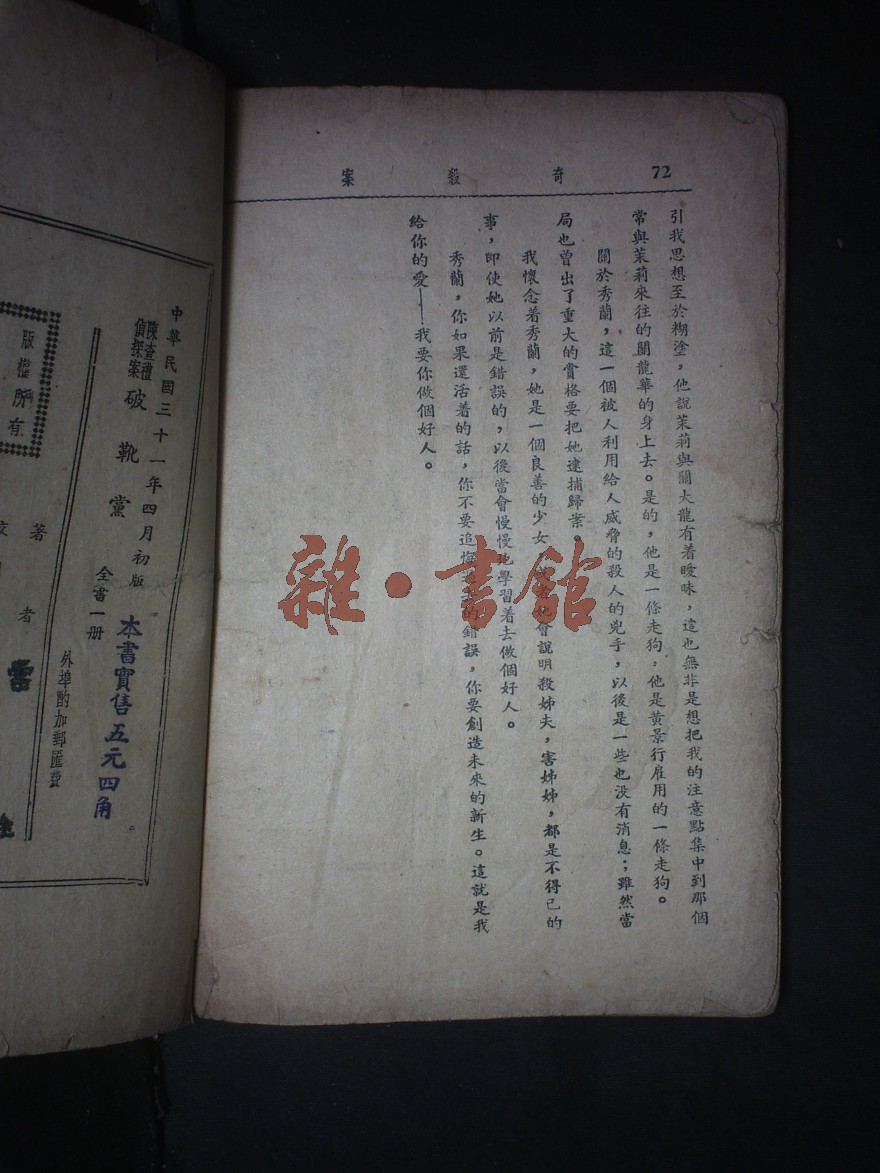 72 奇殺案
引我思想至於糊塗，他說茉莉與關大龍有着曖昧，這也無非是想把我的注意點集中到那個
常與茉莉來往的關龍華的身上去。是的，他是一條走狗，他是黃景行雇用的一條走狗。
關於秀蘭，這一個被人利用給人威脅的殺人的兇手，以後是一些也没有消息；雖然當
局也曾出了重大的賞格要把她逮捕歸案。
我懷念着秀蘭，她是一個良善的少女，會說明殺姊夫，害姊姊，都是不得已的
事，即使她以前是錯誤的，以後當會慢慢地學習着去做個好人。
秀蘭，你如果還活着的話，你不要追悔的錯誤，你要創造未來的新生。這就是我
給你的愛——我要你做個好人。
雜·書館
中華民國三十一年四月初版
陳查禮偵探案 破靴黨 全書一册
本書實售五元四角
外埠酌加郵匯費
版權所有
著
者